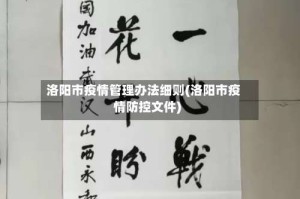 洛阳市疫情管理办法细则(洛阳市疫
情防控文件)
一心战
花 盼
国加油武汉山西永和